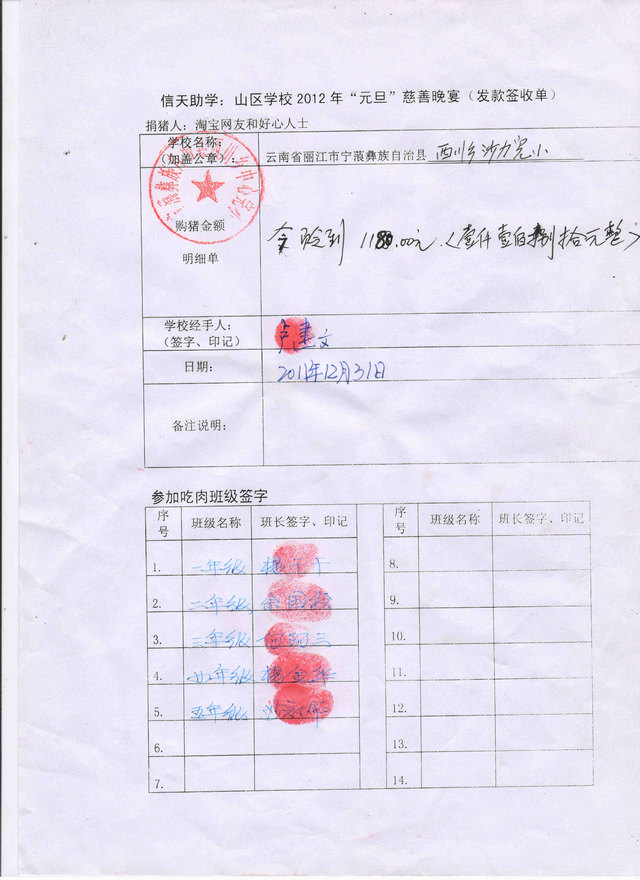 信天助学：山区学校2012年“元旦”慈善晚宴（发款签收单）
捐猪人：淘宝网友和好心人士
学校名称：
（加盖公章）：
云南省丽江市宁蒗彝族自治县 西川乡沙力完小
购猪金额
明细单
今验到 1180.00元.（壹仟壹佰捌拾元整）
学校经手人：
（签字、印记）
卢建文
日期：
2011年12月31日
备注说明：
参加吃肉班级签字
序号 班级名称 班长签字、印记 序号 班级名称 班长签字、印记
1. 一年级 8.
2. 二年级 9.
3. 三年级 10.
4. 四年级 杨金华 11.
5. 五年级 12.
6. 13.
7. 14.